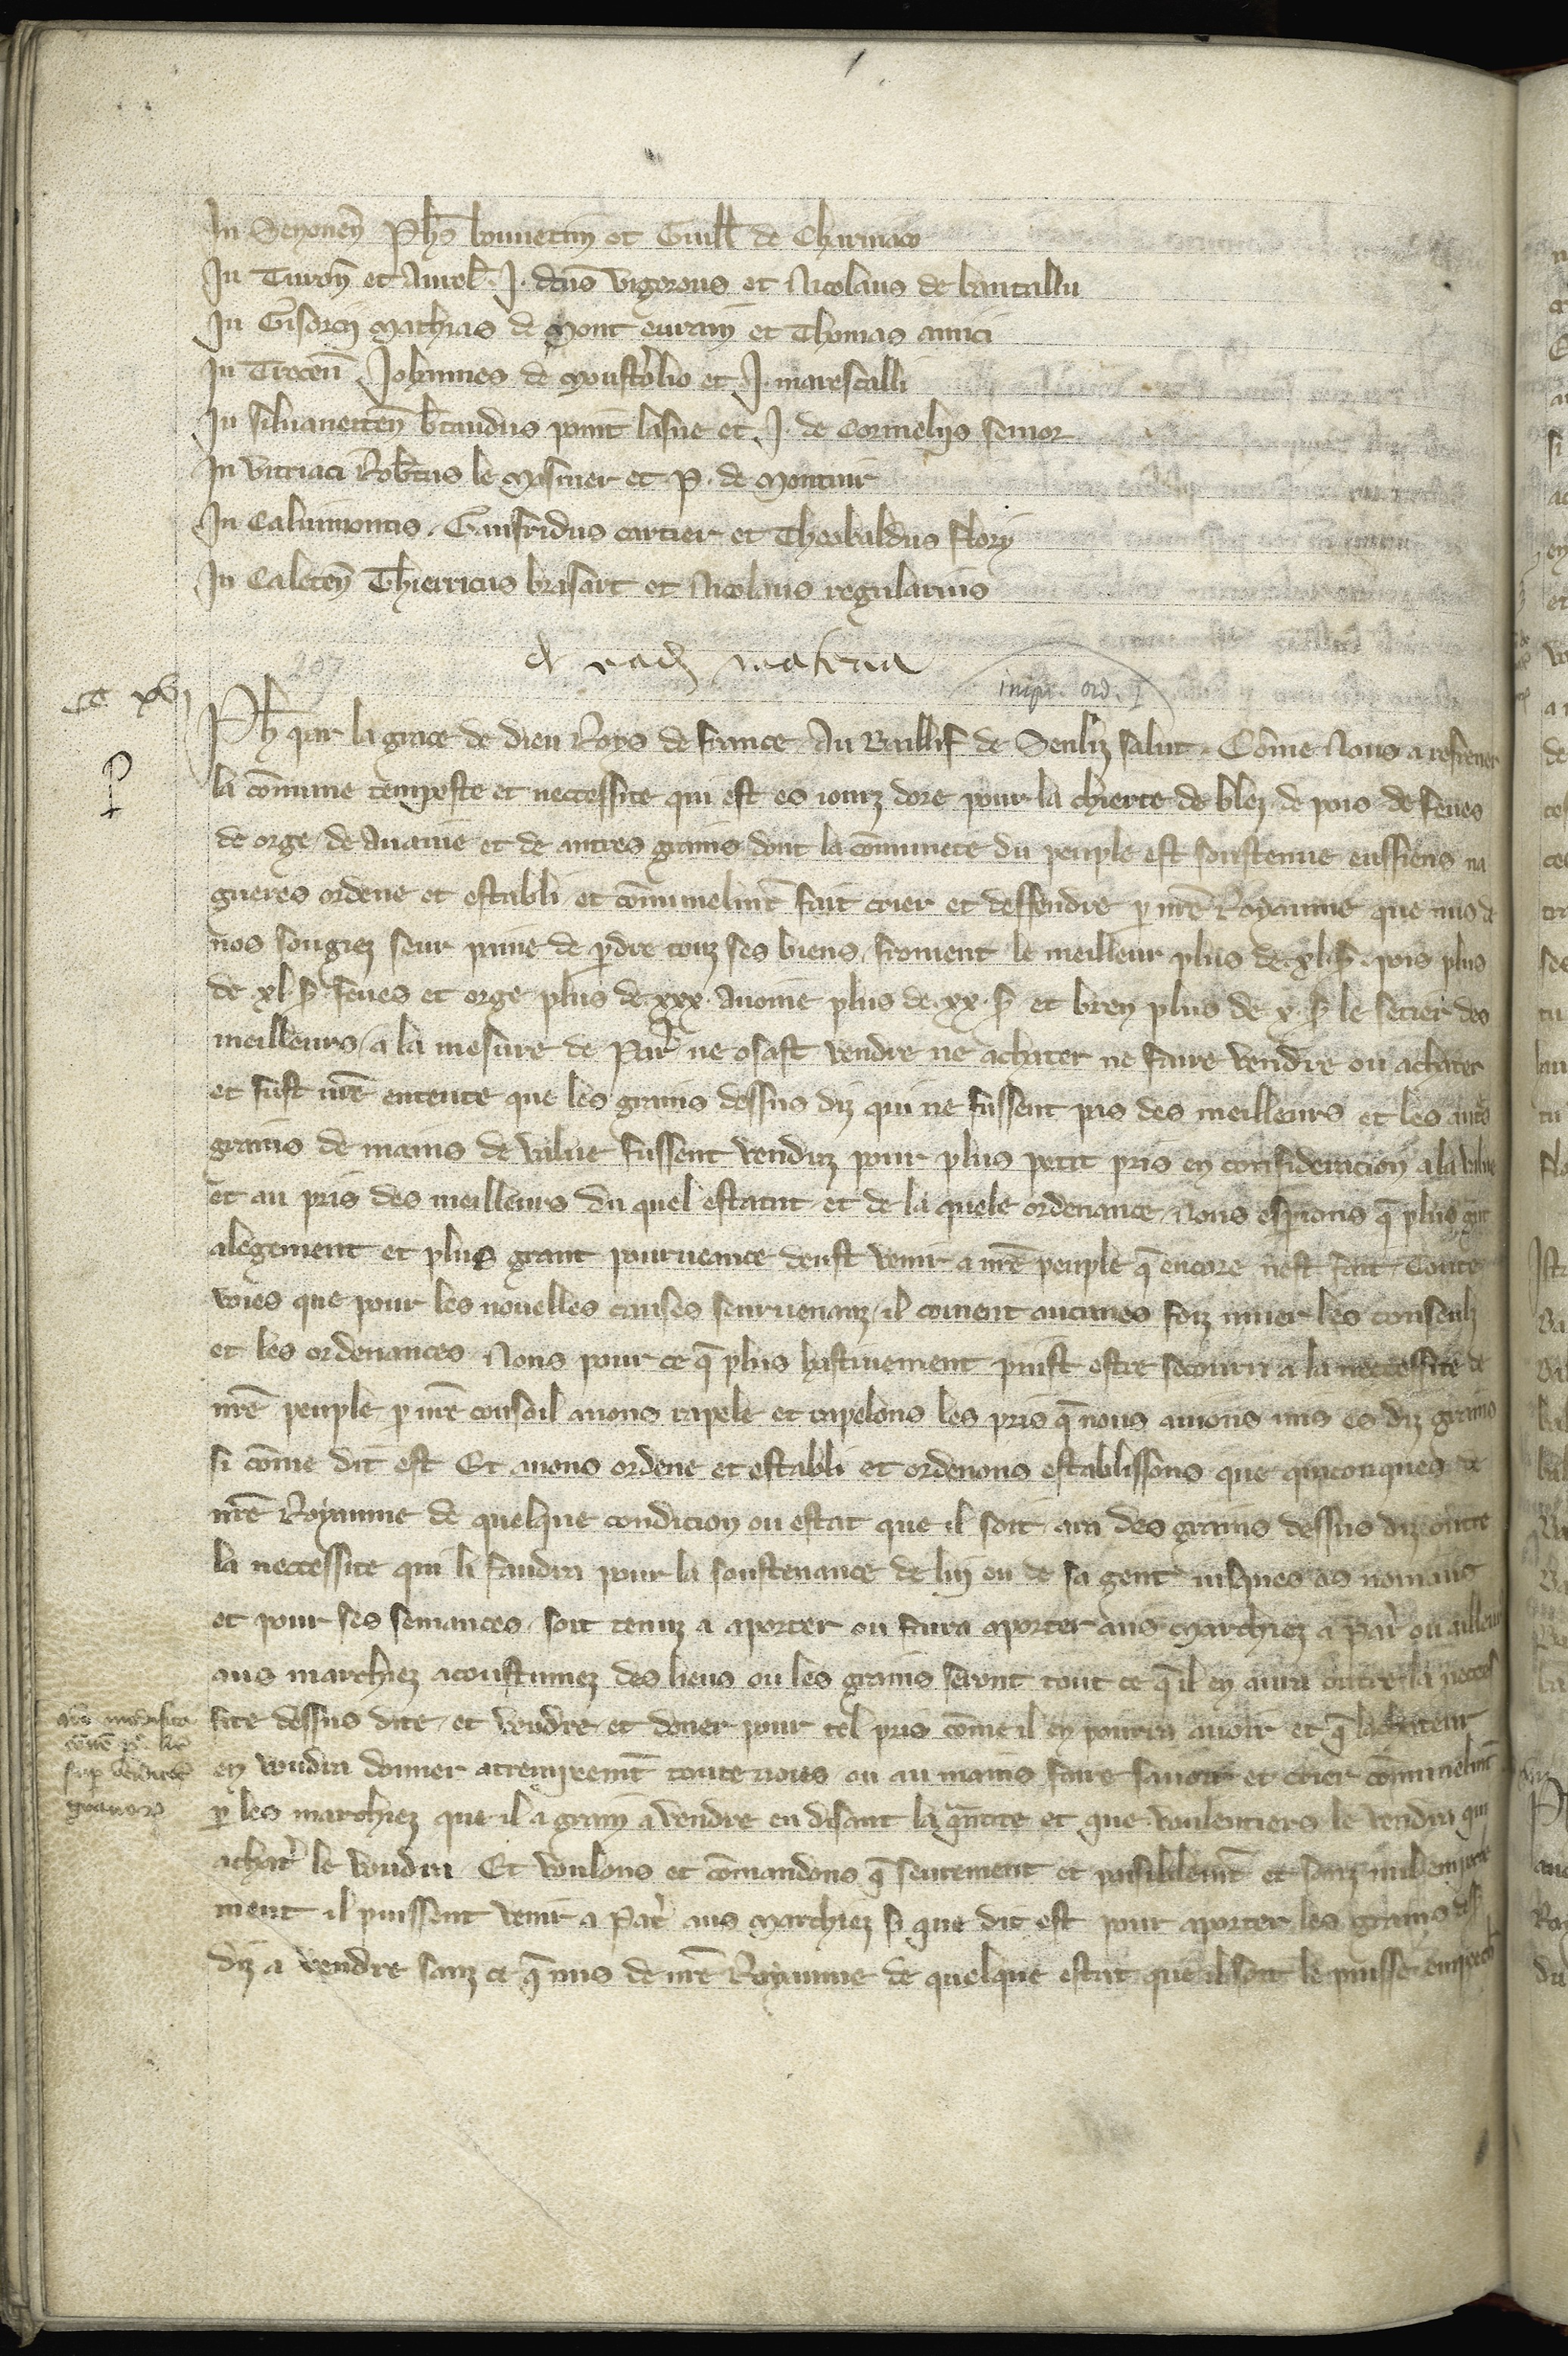 In Senonen̄ Ph̄s bouuetin et Guill̄ de Charnaco
In Turon̄ et Aurel̄. J. dc̄us vigerous et Nicolaus de bantallu
In Gisorcii Mathias de Mont eurain et Thomas amici
In Trecen̄ Johannes de Moust'olio et J. marescalli
In siluanecten̄ b'taudus point lasne et J. de Cormeliis senior
In vitriaci Rob'tus le Masnier et P. de Montuir
In Caluimontis. Gaufridus cartier et Theobaldus flory
In Caleten̄ Thierricus brasart et Nicolaus regularius
de ead̄ materia
207
impr. ord. I
cc xvi
Ph̄ par la grace de dieu Roys de france. Au Baillif de Senliz salut. Cōme Nous a refrener
la cōmune tempeste et neccessite qui est es iourz dore pour la chierte de blez de pois de feues
de orge de Auaine et de autres grains dont la cōmunete du peuple est soustenue eussiens na
gueres ordene et establi et cōmunelmt̄ fait crier et deffendre p nrē Royaume que nus de
nos sougiez seur paine de pdre touz ses biens, froment le meilleur plus de xl. s. pois plus
de xl. s. feues et orge plus de xxx. Auoine plus de xx. s. et bren plus de x. s. le setier des
meilleurs a la mesure de Par' ne osast vendre ne achater ne faire vendre ou achater
et fust nrē entente que les grains dessus diz qui ne fussent pas des meilleurs et les autꝭ
grains de mains de value fussent venduz pour plus petit pris en consideracion a la value
et au pris des meilleurs du quel estatut et de la quele ordenance Nous espions q̄ plus gnt
alegement et plus grant pourueance deust venir a nrē peuple q̄ encore nest fait. Toute
voies que pour les nouelles causes seuruenanz il couient aucunes foiz muer les conseulz
et les ordenances Nous pour ce q̄ plus hastiuement puist estre secouru a la neccessite de
nrē peuple p nrē conseil auons rapele et rapelons les pris q̄ nous auions mis es diz grains
si cōme dit est Et auons ordene et establi et ordenons establissons que quiconques de
nrē Royaume de quelque condicion ou estat que il soit ara des grains dessus diz outre
la neccessite qui li faudra pour la soustenance de luj ou de sa gent iusques as nouiaus
et pour ses semances soit tenuz a aporter ou faire aporter aus Marchiez a Par' ou ailleurs
aus marchiez acoustumez des lieus ou les grains seront tout ce q̄ il en aura outre la necces
site dessus dite et vendre et doner pour tel pris cōme il en pourra auoir et q̄ lachateur
en voudra donner atrempremt̄ toute uoies ou au mains faire sauoir et crier cōmunelmt̄
p les marchiez que il a grain a vendre en disant la q̄ntite et que voulentiers le vendra qui
achat' le voudra Et voulons et cōmandons q̄ seurement et paisiblemt̄ et sanz nul empeeche
ment il puissent venir a Par' aus Marchiez si que dit est pour aporter les grains dess
diz a vendre sanz ce q̄ nus de nrē Royaume de quelque estat que il soit le puisse empeech
sup venditōe
granorꝫ